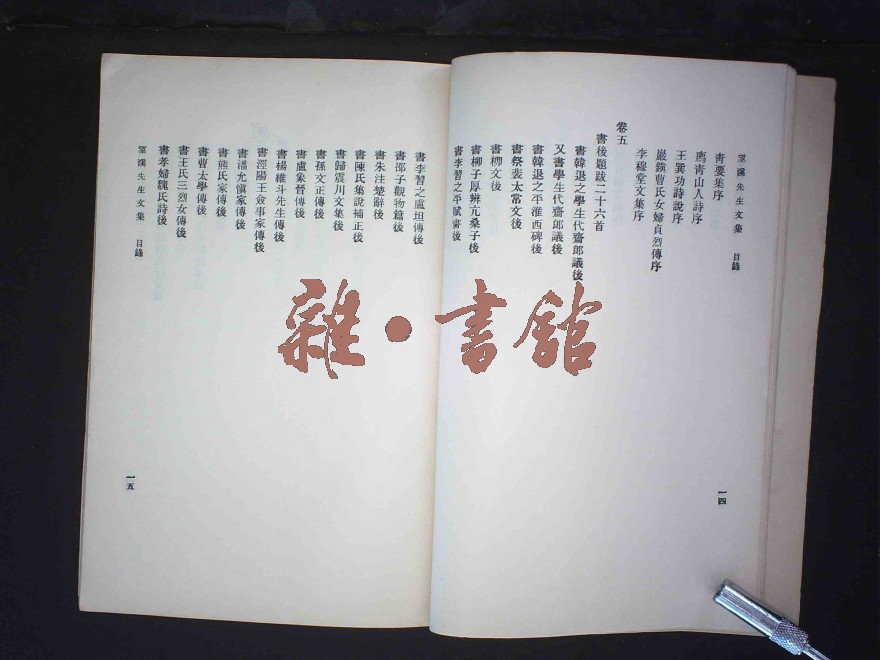 望溪先生文集 目錄
青要集序
廌青山人詩序
王巽功詩說序
嚴鎮曹氏女婦貞烈傳序
李穆堂文集序
卷五
書後題跋二十六首
書韓退之學生代齋郎議後
又書學生代齋郎議後
書韓退之平淮西碑後
書祭裴太常文後
書柳文後
書柳子厚辨亢桑子後
書李習之平賦書後
一四
書李習之盧坦傳後
書邵子觀物篇後
書朱注楚辭後
書陳氏集說補正後
書歸震川文集後
書孫文正傳後
書盧象晉傳後
書楊維斗先生傳後
書涇陽王僉事家傳後
書潘允慎家傳後
書熊氏家傳後
書曹太學傳後
書王氏三烈女傳後
書孝婦魏氏詩後
望溪先生文集 目錄
一五
雜·書館